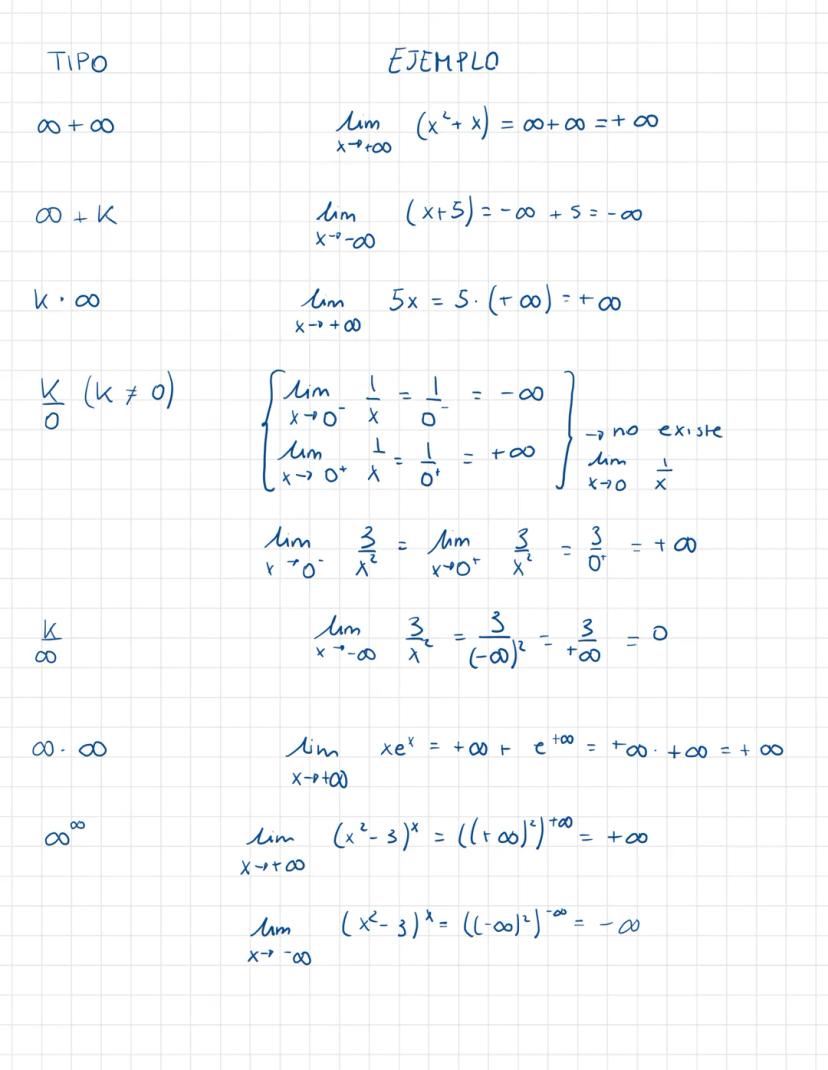 TIPO EJEMPLO
∞ + ∞ lim x→+∞ (x² + x) = ∞ + ∞ = + ∞
∞ + K lim x→-∞ (x+5) = -∞ + 5 = -∞
K · ∞ lim x→+∞ 5x = 5 · (+∞) = +∞
K/0 (K ≠ 0) lim x→0⁻ 1/x = 1/0⁻ = -∞
lim x→0⁺ 1/x = 1/0⁺ = +∞ → no existe lim x→0 1/x
lim x→0⁻ 3/x² = lim x→0⁺ 3/x² = 3/0⁺ = +∞
K/∞ lim x→-∞ 3/x² = 3/(-∞)² = 3/+∞ = 0
∞ · ∞ lim x→+∞ xeˣ = +∞ + e^+∞ = +∞ · +∞ = +∞
∞^∞ lim x→+∞ (x² - 3)ˣ = ((+∞)²)^+∞ = +∞
lim x→-∞ (x² - 3)ˣ = ((-∞)²)^-∞ = -∞